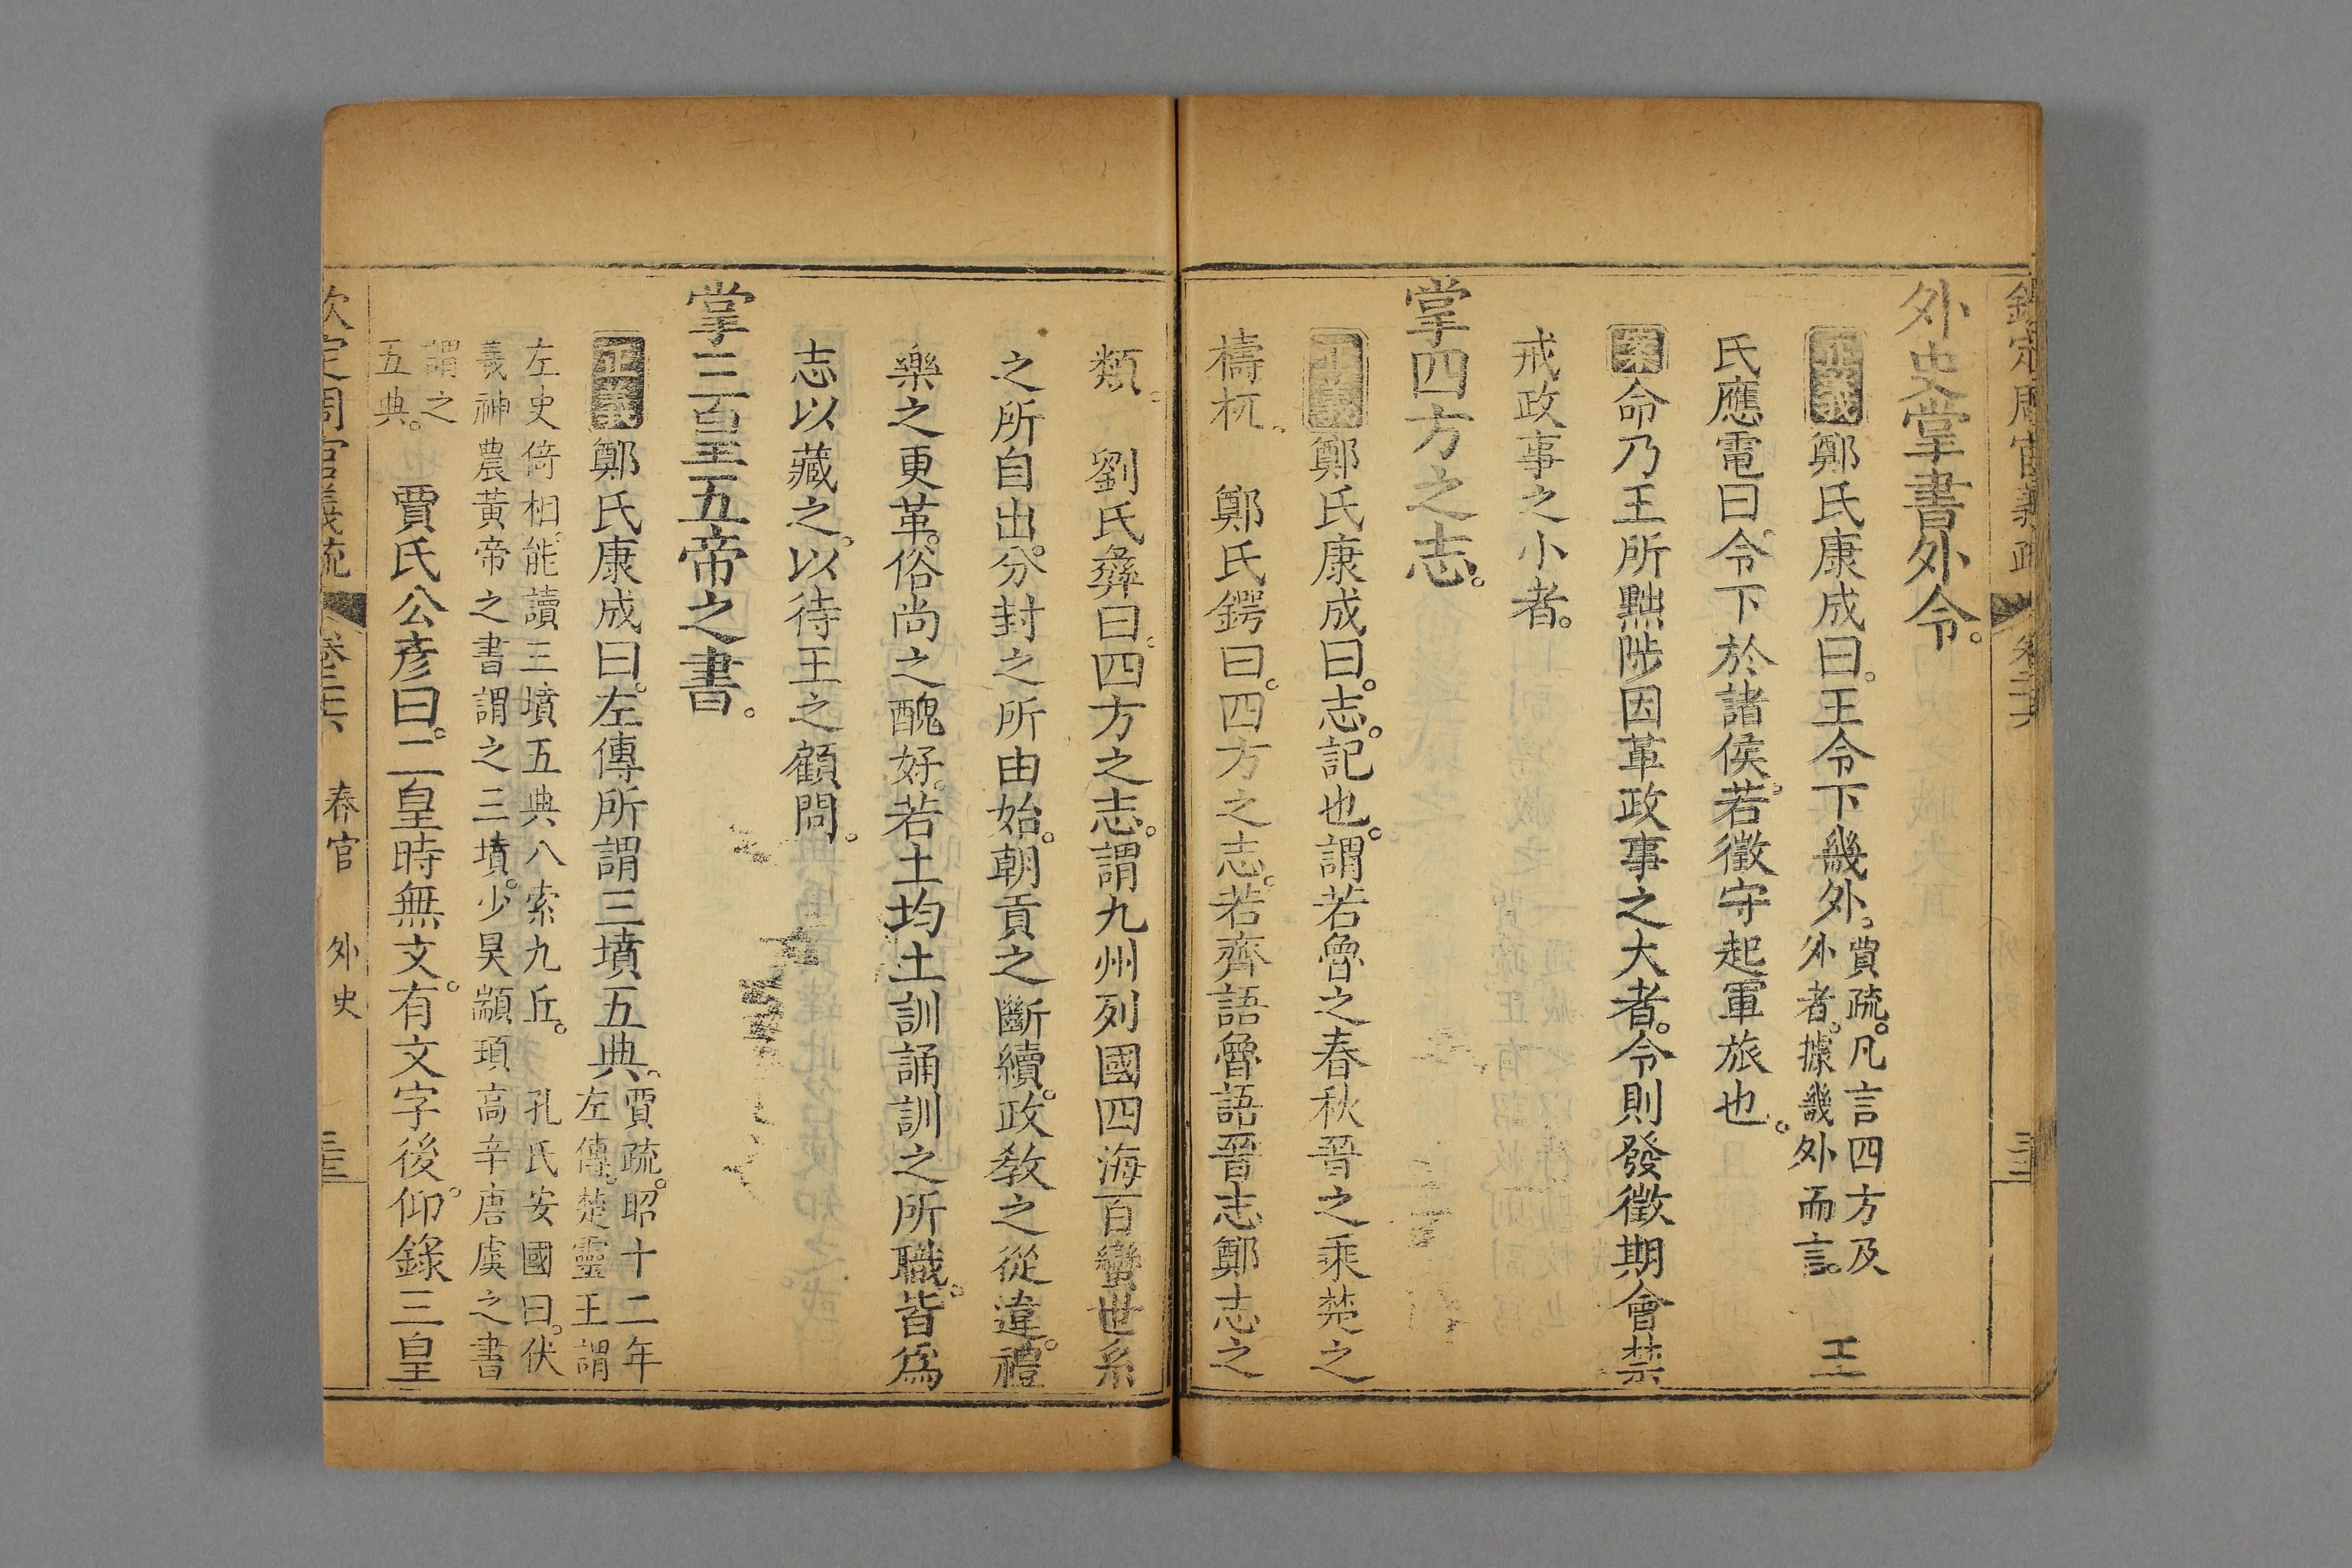 外史掌書外令。
正義鄭氏康成曰。王令下畿外。賈疏。凡言四方及外者。據畿外而言。 王
氏應電曰。令下於諸侯。若徵守起軍旅也。
案命乃王所黜陟因革政事之大者。令則發徵期會禁
戒政事之小者。
掌四方之志。
正義鄭氏康成曰。志。記也。謂若魯之春秋晉之乘楚之
檮杌。 鄭氏鍔曰。四方之志。若齊語魯語晉志鄭志之
類。 劉氏彝曰。四方之志。謂九州列國四海百蠻世系
之所自出。分封之所由始。朝貢之斷續。政敎之從違。禮
樂之更革。俗尚之醜好。若土均土訓誦訓之所職。皆爲
志以藏之。以待王之顧問。
掌三皇五帝之書。
正義鄭氏康成曰。左傳所謂三墳五典。賈疏。昭十二年
左傳。楚靈王謂
左史倚相。能讀三墳五典八索九丘。 孔氏安國曰。伏
羲神農黃帝之書謂之三墳。少昊顓頊高辛唐虞之書
謂之
五典。 賈氏公彥曰。三皇時無文。有文字後。仰錄三皇
欽定周官義疏 卷二十六 春官 外史 三三